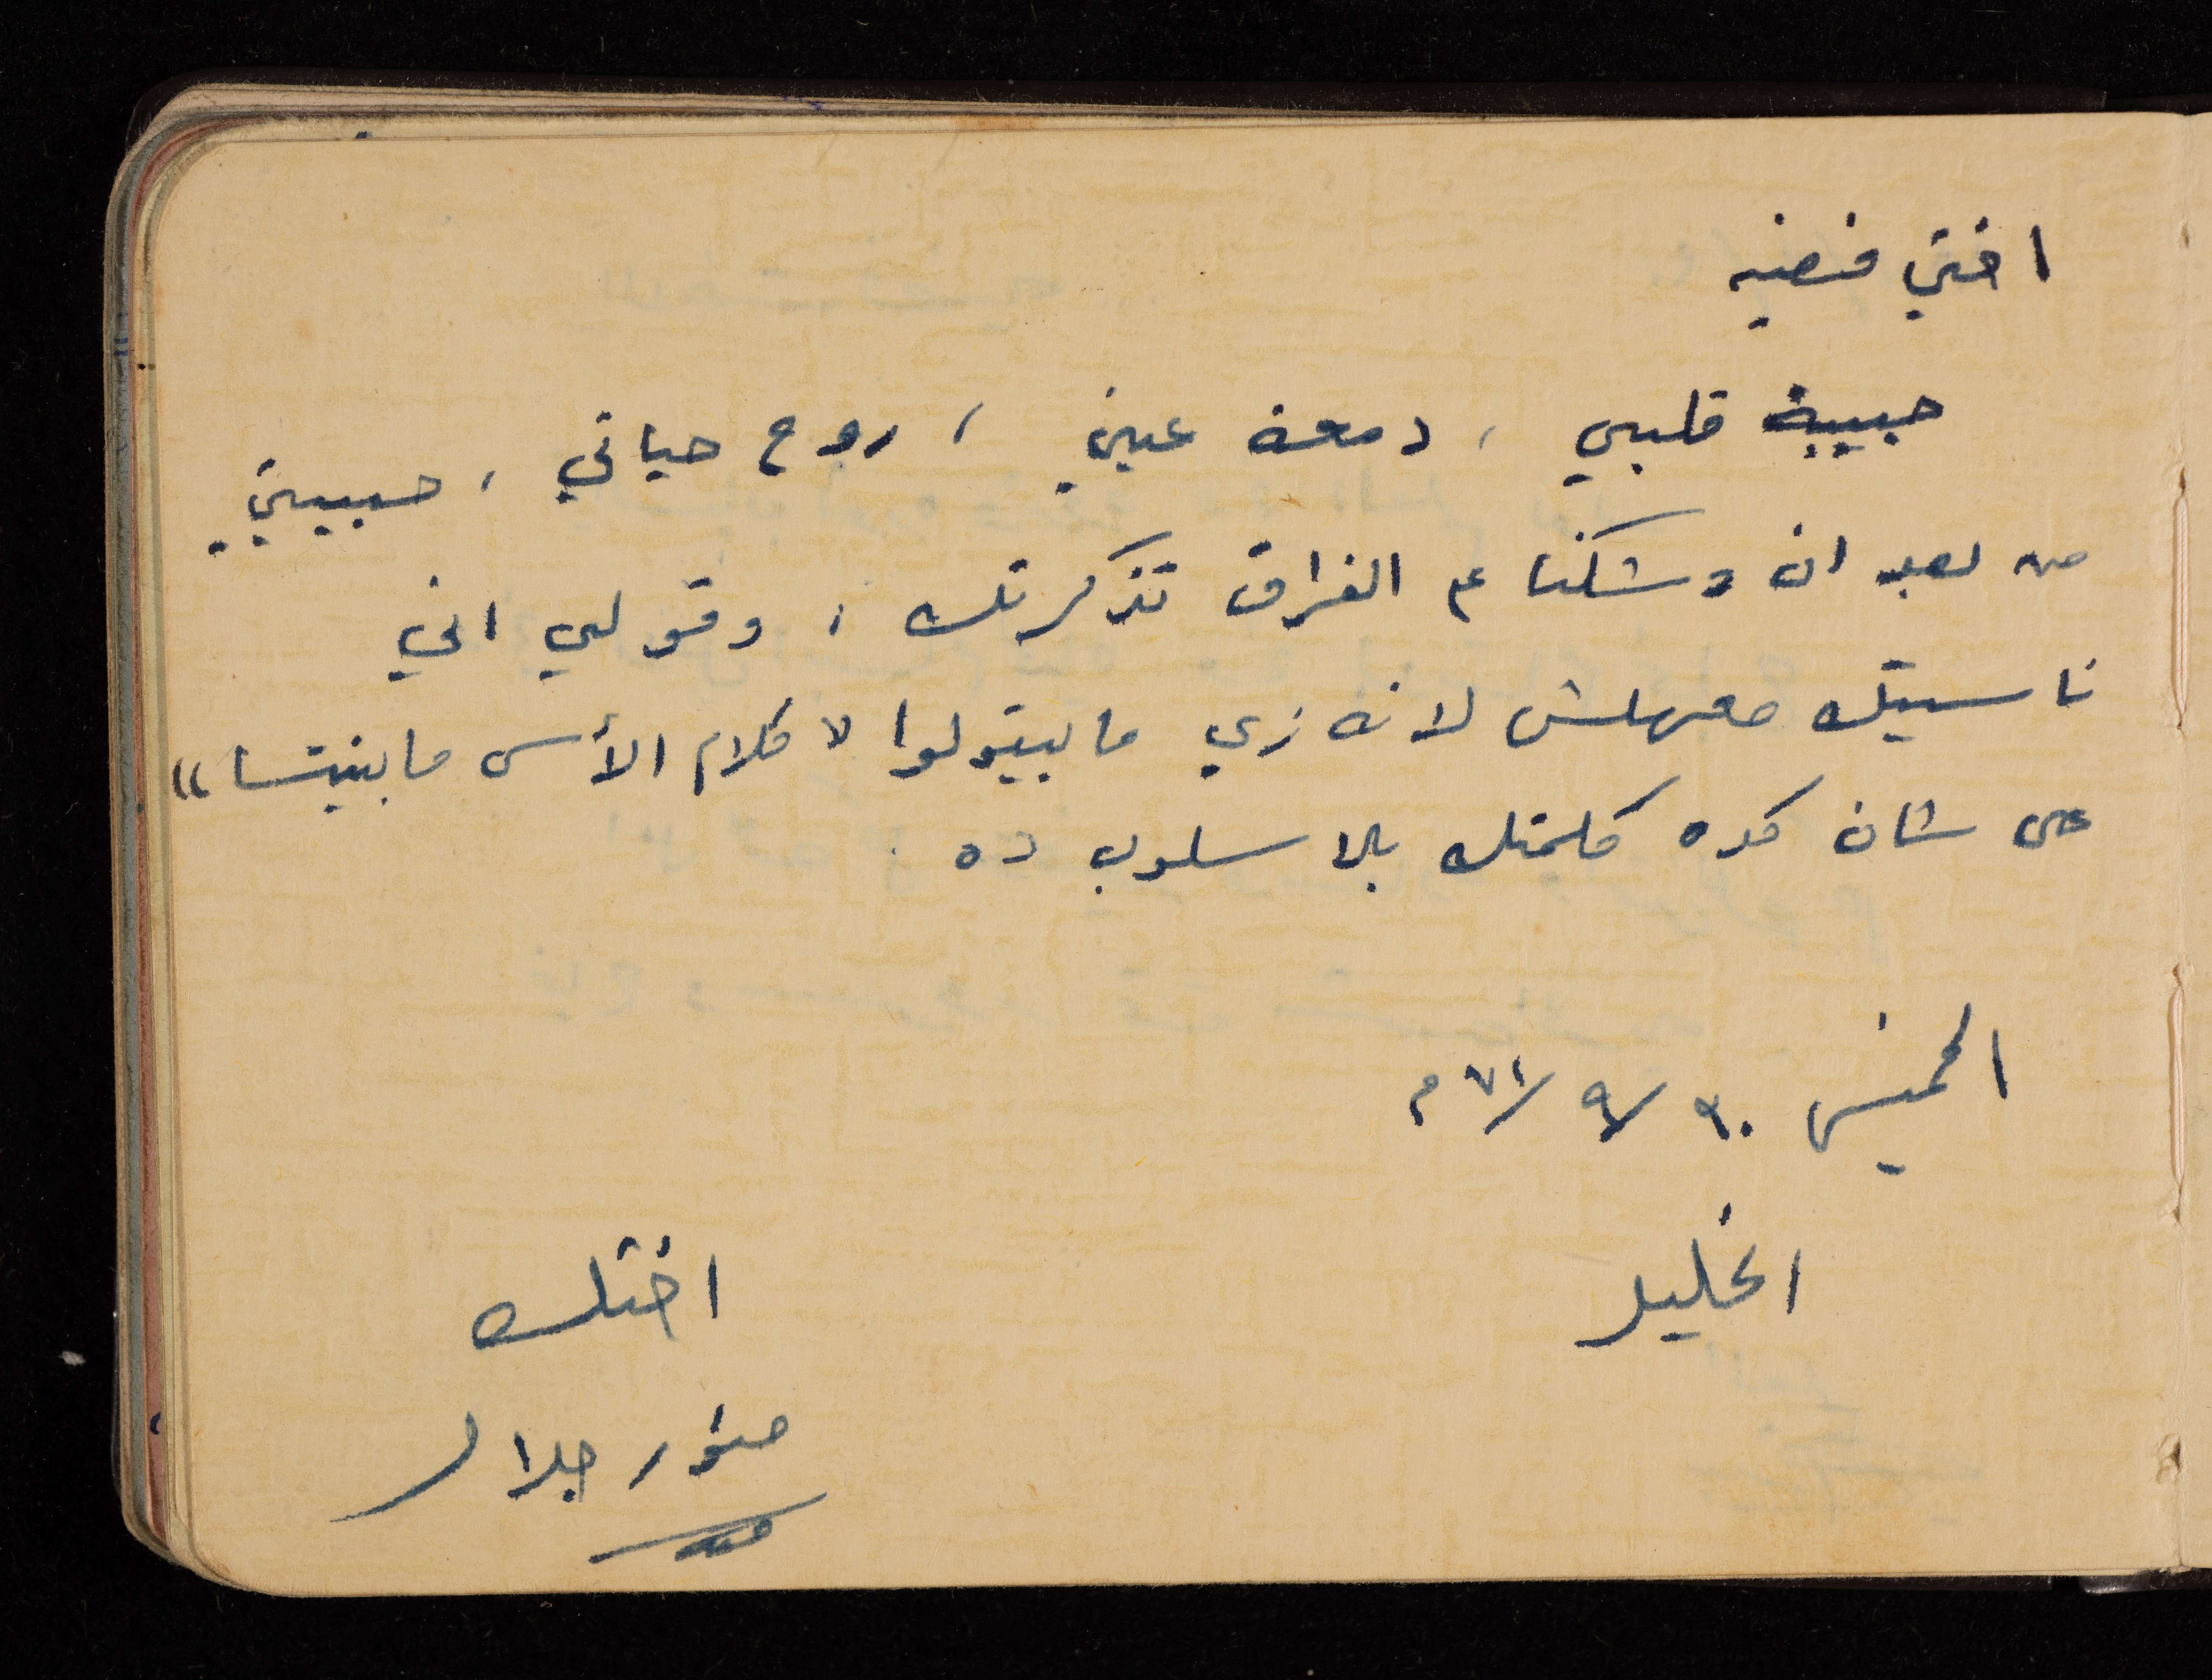 اختي فضيه
حبيبة قلبي ، دمعة عيني ، روح حياتي ، حبيبتي
من بعد ان وشكنا ع الفراق تذكرتك ، وقولي اني
ناسيتك معهلش لانه زي ما بيقولوا لا كلام الأسى ما بنيتسا »
على شان كده كلمتك بالاسلوب ده .
الخميس ٣٠ / ٩ / ٧١ م
الخليل
اختك
منور جلال